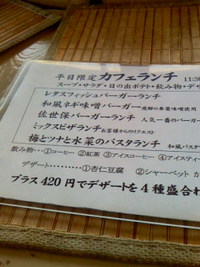 平日限定 カフェランチ 11:30
スープ・サラダ・日の出ポテト・飲み物・デザ
レタスフィッシュバーガーランチ
和風ネギ味噌バーガー
佐世保バーガーランチ 人気一番のバーガー
ミックスピザランチ お客様からのリクエスト
梅とツナと水菜のパスタランチ 和風パスタ
飲み物…①コーヒー ②紅茶 ③アイスコーヒー ④アイスティー
デザート………①杏仁豆腐 ②シャーベット
プラス420円でデザートを4種盛合せ